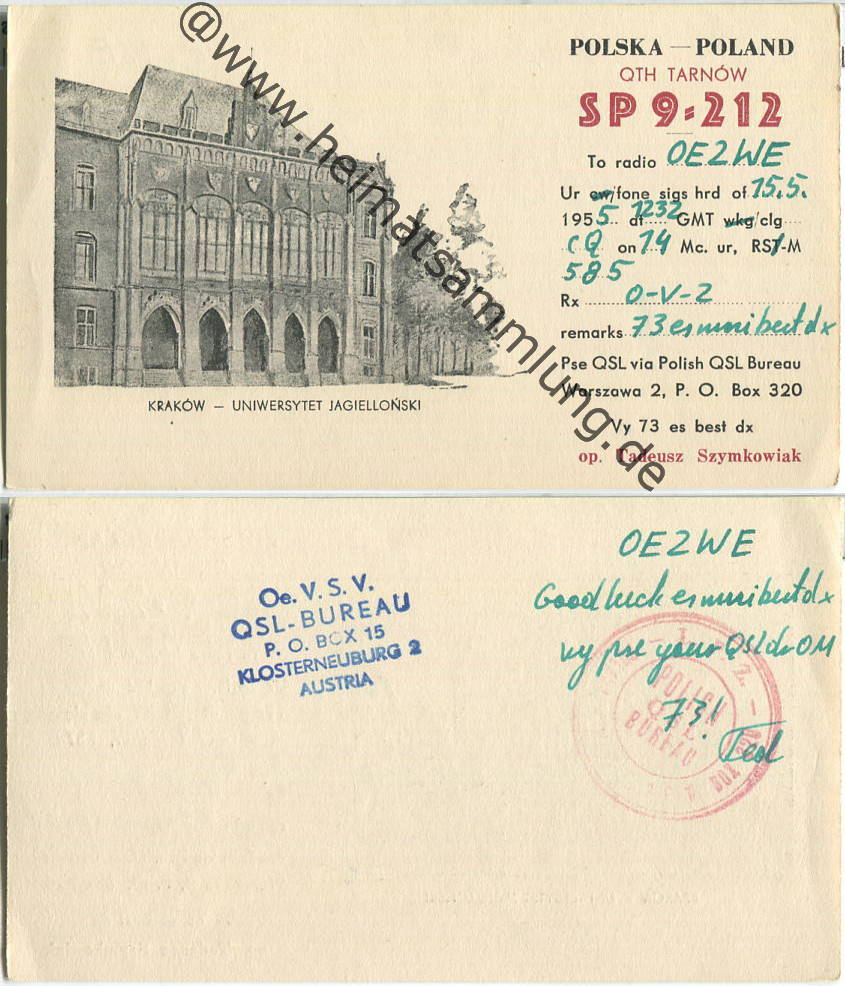 @www.heimatsammlung.de
POLSKA — POLAND
QTH TARNÓW
SP 9-212
To radio OE2WE
Ur cw/fone sigs hrd of 15.5.
1955 at 1232 GMT wkg/clg
CQ on 14 Mc. ur, RST-M
585
Rx 0-V-2
remarks 73 es mni best dx
Pse QSL via Polish QSL Bureau
Warszawa 2, P. O. Box 320
Vy 73 es best dx
op. Tadeusz Szymkowiak
KRAKÓW — UNIWERSYTET JAGIELLOŃSKI
OE2WE
Good luck es mni best dx
vy pse your QSL dr OM
73!
Ted
Oe. V. S. V.
QSL-BUREAU
P. O. BOX 15
KLOSTERNEUBURG 2
AUSTRIA
POLISH
QSL
BUREAU
BOX 320